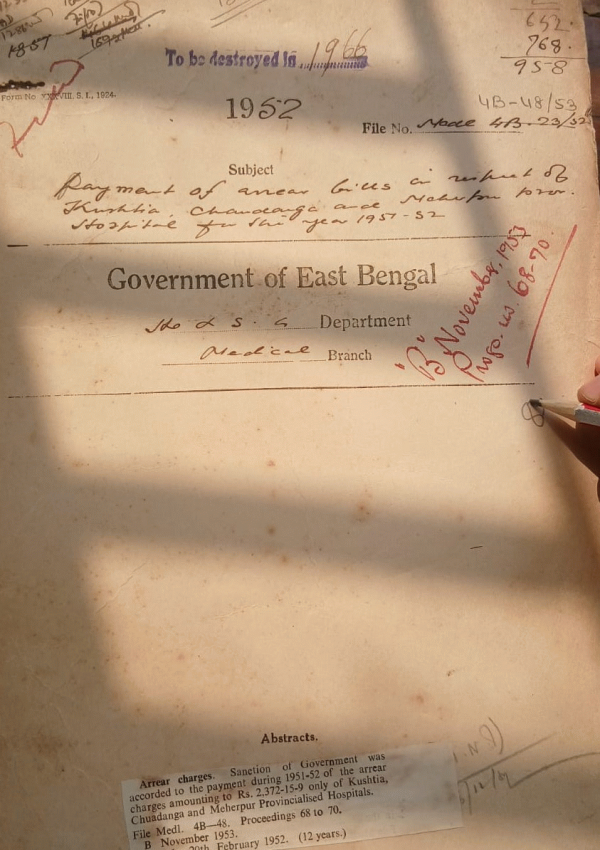 652.
768.
958
To be destroyed in 1966
Form No. XXXVIII. S. I., 1924.
1952
4B-48/53
File No. Medl 4B-23/52
Subject
Payment of arrear bills in respect of
Kushtia, Chuadanga and Meherpur prov.
Hospital for the year 1951-52
Government of East Bengal
H. & S. G Department
Medical Branch
"B" November, 1953
Progs. no. 68-70.
Abstracts.
Arrear charges. Sanction of Government was
accorded to the payment during 1951-52 of the arrear
charges amounting to Rs. 2,372-15-9 only of Kushtia,
Chuadanga and Meherpur Provincialised Hospitals.
File Medl. 4B—48. Proceedings 68 to 70.
B November 1953.
February 1952. (12 years.)